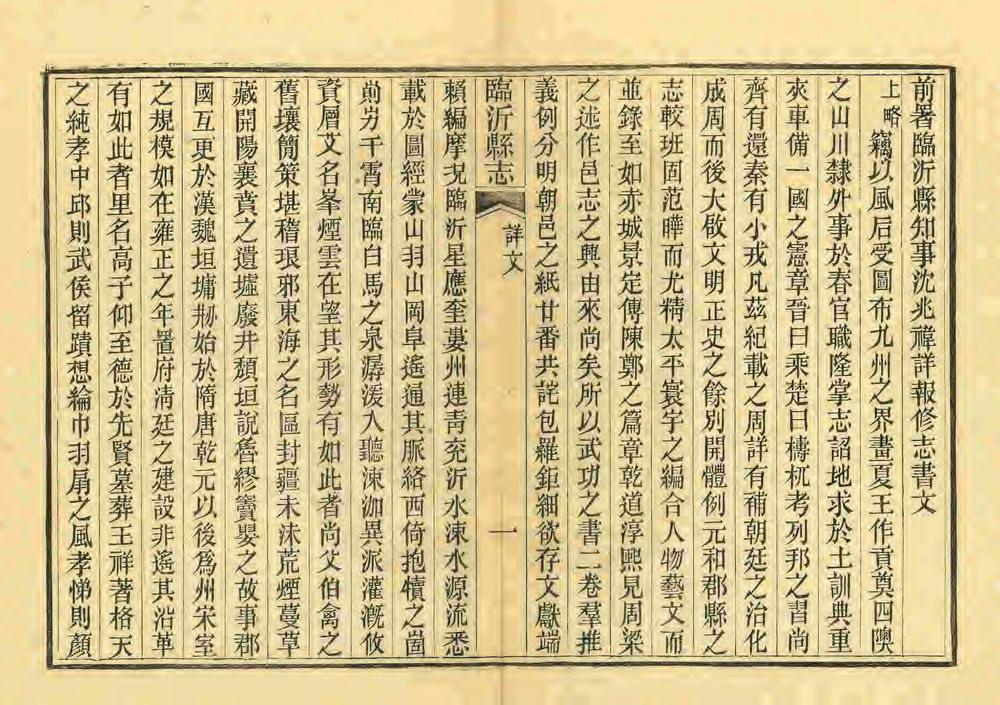 前署臨沂縣知事沈兆禕詳報修志書文
上略竊以風后受圖布九州之界畫夏王作貢奠四隩
之山川隸外事於春官職隆掌志詔地求於土訓典重
夾車備一國之憲章晉曰乘楚曰檮杌考列邦之習尚
齊有還秦有小戎凡茲紀載之周詳有補朝廷之治化
成周而後大啟文明正史之餘別開體例元和郡縣之
志較班固范曄而尤精太平寰宇之編合人物藝文而
並錄至如赤城景定傳陳鄭之篇章乾道淳熙見周梁
之述作邑志之興由來尚矣所以武功之書二卷羣推
義例分明朝邑之紙廿番共詫包羅鉅細欲存文獻端
臨沂縣志 詳文 一
賴編摩況臨沂星應奎婁州連青兗沂水涑水源流悉
載於圖經蒙山羽山岡阜遙通其脈絡西倚抱犢之崮
崱屴干霄南臨白馬之泉潺湲入聽涑泇異派灌漑攸
資層文名峯煙雲在望其形勢有如此者尚父伯禽之
舊壤簡策堪稽琅邪東海之名區封疆未沬荒煙蔓草
藏開陽襄賁之遺墟廢井頹垣說魯繆竇嬰之故事郡
國互更於漢魏垣墉剏始於隋唐乾元以後爲州宋室
之規模如在雍正之年置府淸廷之建設非遙其沿革
有如此者里名高子仰至德於先賢墓葬王祥著格天
之純孝中邱則武侯留蹟想綸巾羽扇之風孝悌則顏